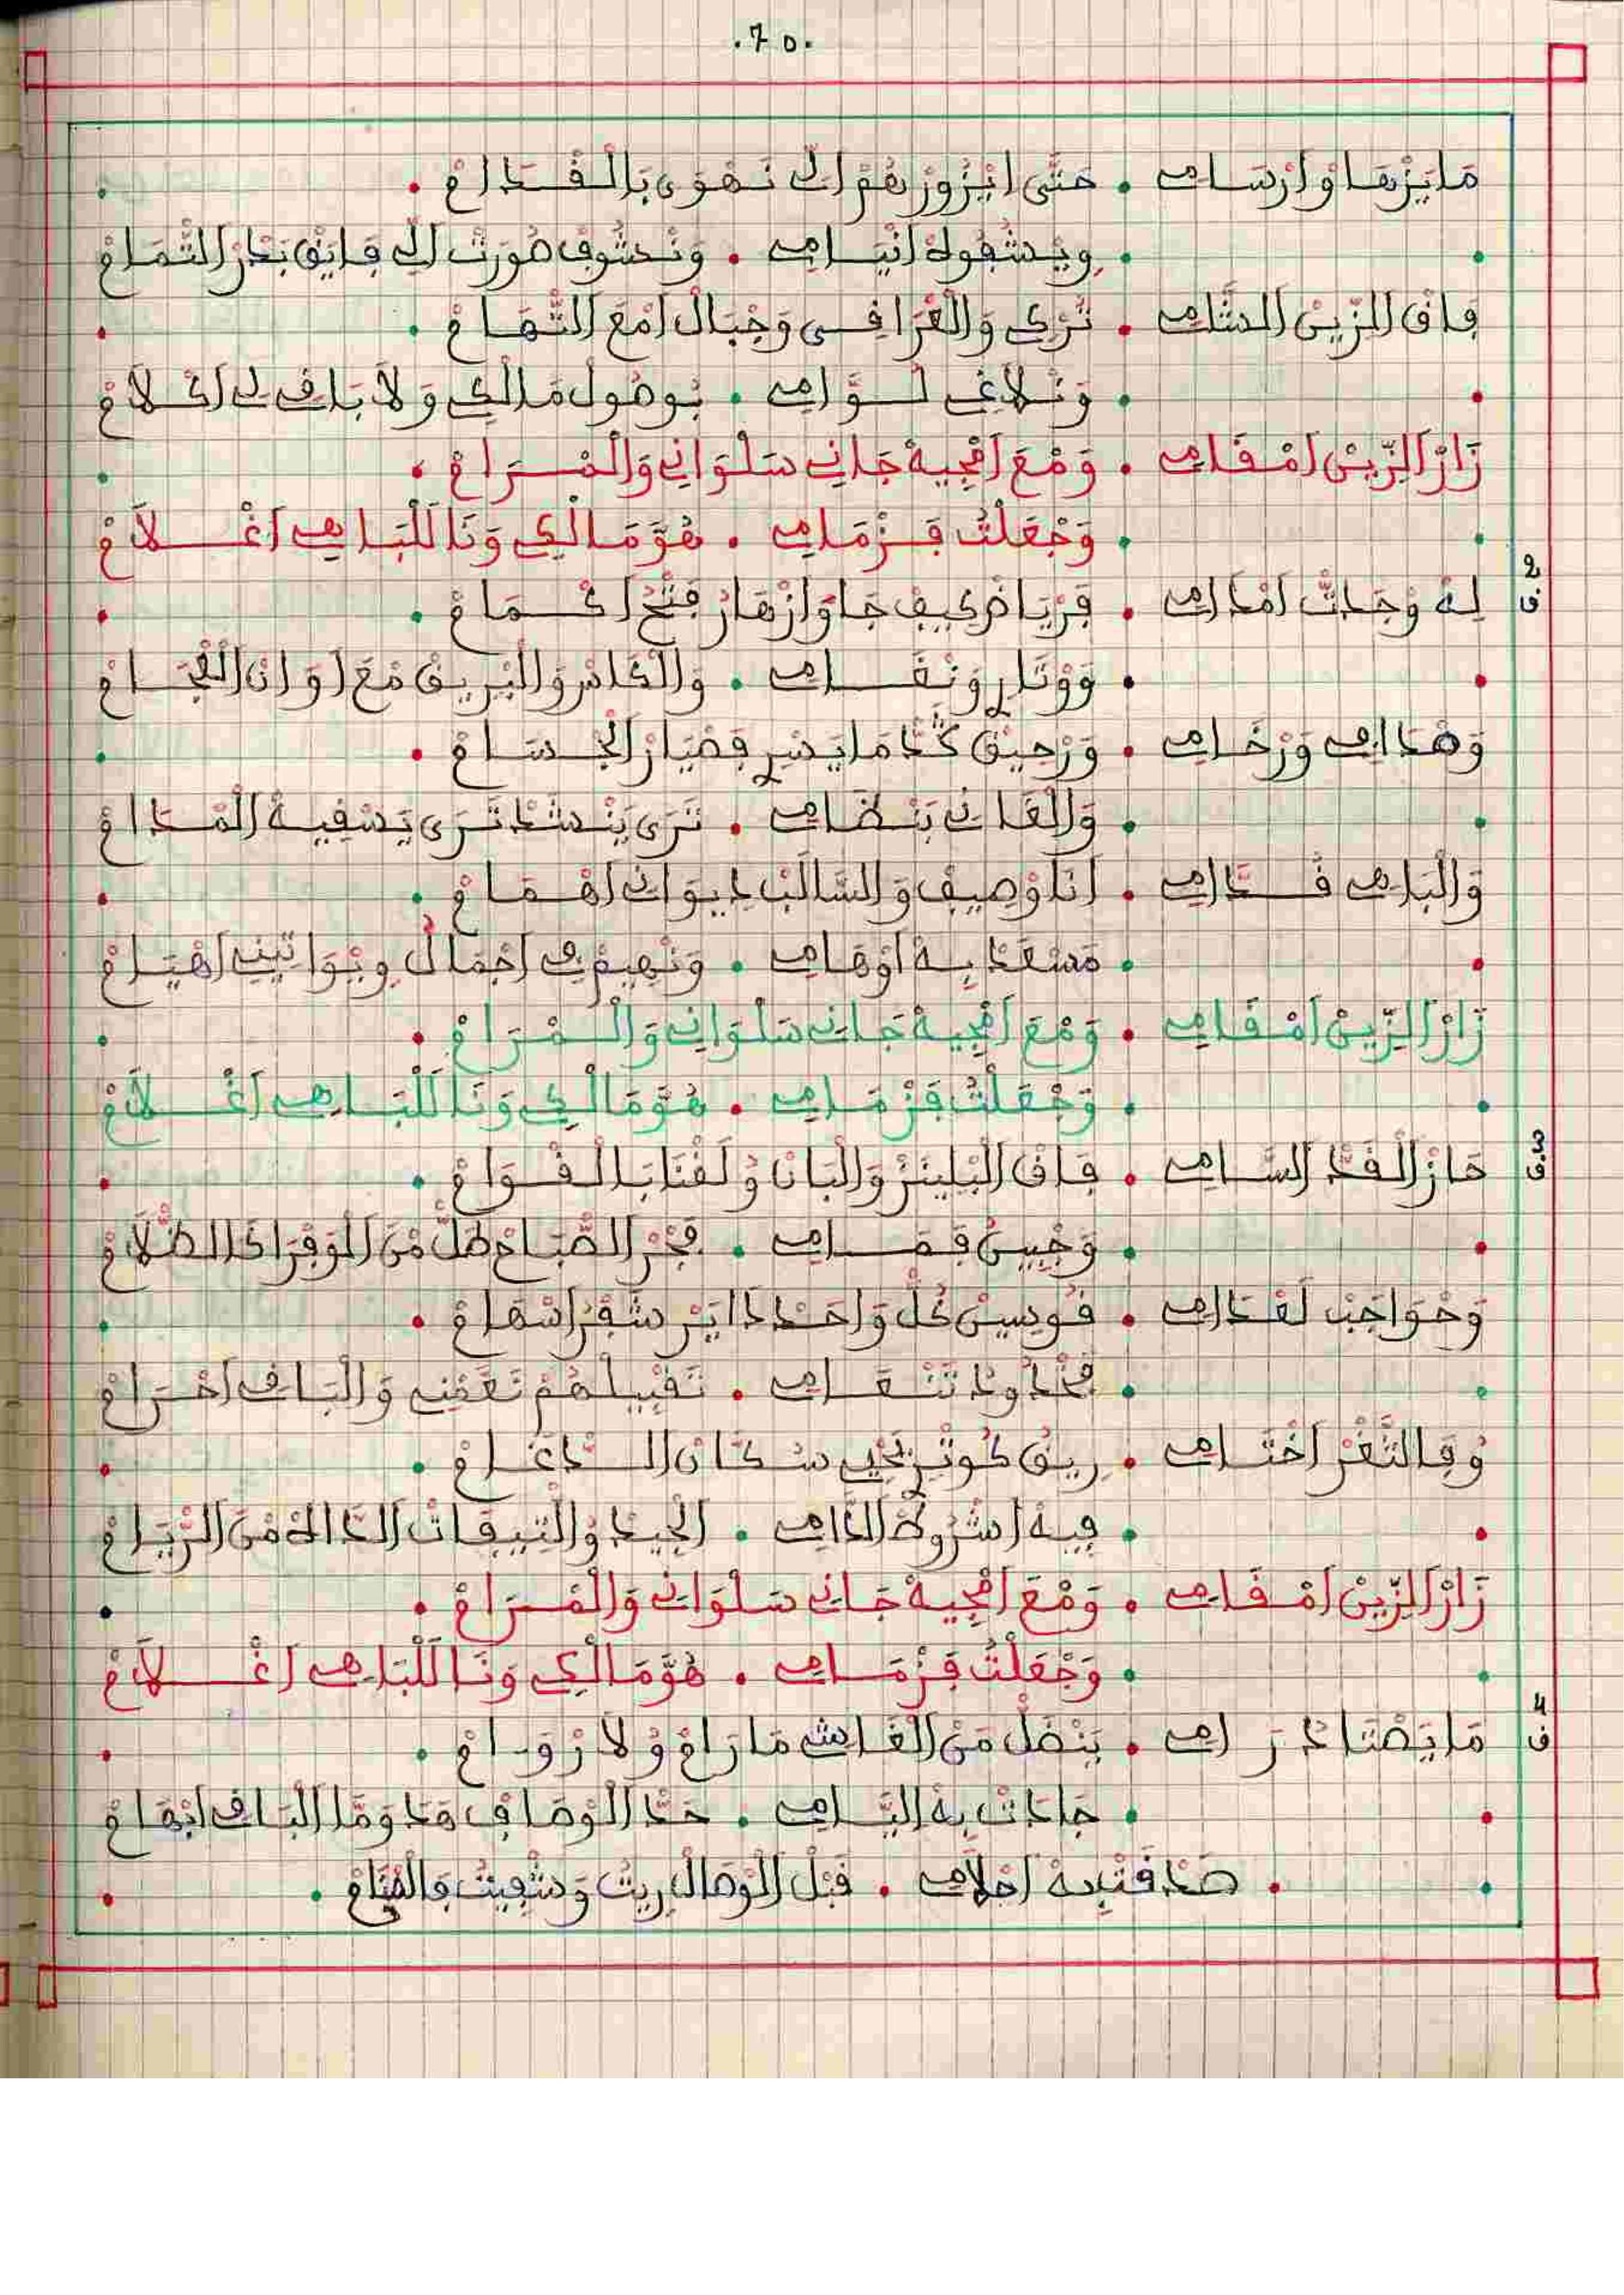 .70.
مَا يَزْهَاوْ اَرْسَامِي • حَتَّى ايْزُورْ هُمْ اَلِّ نَهْوَى بَالْقْدَامْ •
• وِيْشَفُوهْ اَنْيَامِي • وَنْشُوفْ صُورَتْ اَلِّي فَايَقْ بَدْرْ التّْمَامْ
فَاقْ الزِّينْ الشَّامِي • تُرْكِي وَالْعْرَافِسِي وَجْبَالْ اَمْعَ التّْهَامْ •
• وَنْلاَغِي لُوَّامِي • بُوصُولْ مَالْكِي وَلاَ بَاقِي لِي اَكْلاَمْ
زَارْ الزِّينْ اَمْقَامِي • وَمْعَ اَمْجِيهْ جَانِي سَلْوَانِي وَالْمْرَامْ •
• وَجْعَلْتْ فَزْمَامِي • هُوَّ مَالْكِي وَنَا لَلْبَاهِي اَغْلاَمْ
ف 2
لِهْ وَجَاتْ اَمْدَامِي • فَرْيَاضْ كِيفْ جَاوْ اَزْهَارْ فَتْحْ اَكْمَامْ •
• وَوْتَارْ وَنْغَامِي • وَالْكَاسْ وَالْبْرِيقْ مْعَ اَوَانْ الْعْجَامْ
وَهْدَامِي وَرْخَامِي • وَرْحِيقْ كَدَّ مَا يَسْرِ فَصْيَارْ الْجْسَامْ •
• وَالْغَانِي بَنْضَامِي • تَرَى يَنْشَدْ تَرَى يَسْقِيهْ الْمْدَامْ
وَالْبَاهِي قُدَّامِي • اَنَا وْصِيفْ وَالسَّالَبْ دِيوَانِي اَهْمَامْ •
• مَسْعَدْ بِهْ اَوْهَامِي • وَنْهِيمْ فِي اَجْمَالْ وِيْوَاتِينِي اَهْيَامْ
زَارْ الزِّينْ اَمْقَامِي • وَمْعَ اَمْجِيهْ جَانِي سَلْوَانِي وَالْمْرَامْ •
• وَجْعَلْتْ فَزْمَامِي • هُوَّ مَالْكِي وَنَا لَلْبَاهِي اَغْلاَمْ
ف 3
حَازْ الْقَدّْ السَّامِي • فَاقْ الْبْلِينَزْ وَالْبَانْ وُلَقْنَا بَالْقْوَامْ •
• وَجْبِينْ قَمَامِي • فَجْرْ الصّْبَاحْ طَلّْ مْنْ الْوَفْرَا كَا الضّْلاَمْ
وَحْوَاجَبْ لَعْدَامِي • قُوسِينْ كُلّْ وَاحَدْ دَايَرْ شَفْرْ اَسْهَامْ •
• فَخْدُودْ تَنْعَامِي • تَقْبِيلْهُمْ نَغَّمْنِي وَالْبَاقِي اَحْرَامْ
وُفَالثَّغْرْ اَخْتَامِي • رِيقْ كُوثَرْ يَحْيِي سُكَّانْ الدّْغَامْ •
• فِيهْ اَشْرُوطْ الدَّامِي • الْجِيدْ وُالتِّيقَاتْ الدَّالَهْ مْنَ الرّْيَامْ
زَارْ الزِّينْ اَمْقَامِي • وَمْعَ اَمْجِيهْ جَانِي سَلْوَانِي وَالْمْرَامْ •
• وَجْعَلْتْ فَزْمَامِي • هُوَّ مَالْكِي وَنَا لَلْبَاهِي اَغْلاَمْ
ف 4
مَا يَصْتَادْ رَامِي • يَنْضَلّْ مَنْ الْغَاشِي مَا رَامْ وُلاَ رْوَامْ •
• جَادَتْ بِهْ اليَّامِي • حَدّْ الْوْصَافْ هَدَ وَمَّا الْبَاقِي اَبْهَامْ
• صَدْقَتْ بِهْ اَحْلاَمِي • قَبْلْ الْوْصَالْ رِيتْ وَشْفِيتْ فَالْمْنَامْ •